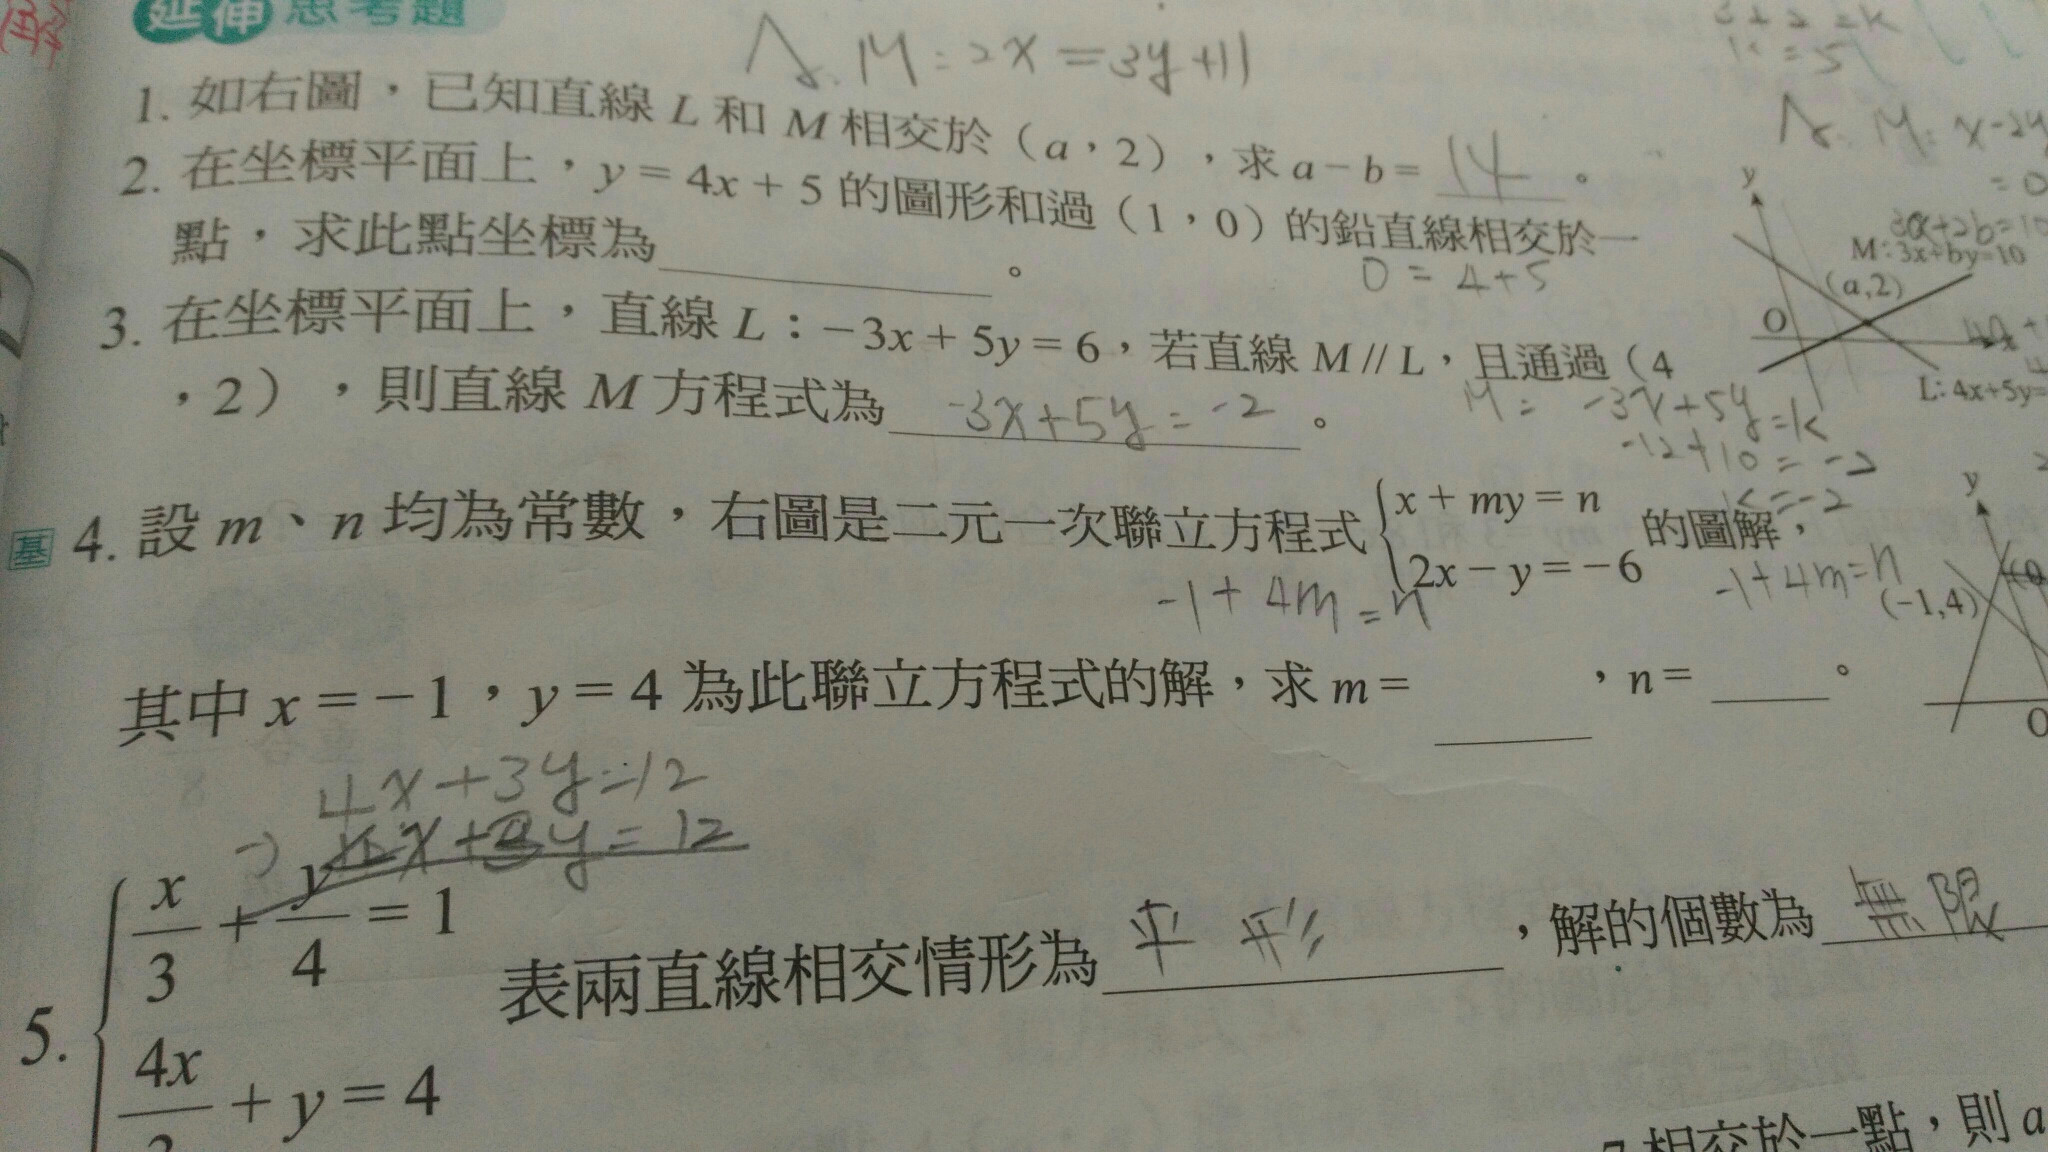 延伸思考題
M:2x=3y+11
1. 如右圖，已知直線 L 和 M 相交於（a，2），求 a－b＝ 14 。
2. 在坐標平面上，y＝4x＋5 的圖形和過（1，0）的鉛直線相交於一
點，求此點坐標為 。
0=4+5
3. 在坐標平面上，直線 L：－3x＋5y＝6，若直線 M // L，且通過（4
，2），則直線 M 方程式為 -3x+5y=-2 。
M: -3x+5y=k
-12+10=-2
k=-2
y
3a+2b=10
M:3x+by=10
(a,2)
O
x
L: 4x+5y=
基 4. 設 m、n 均為常數，右圖是二元一次聯立方程式 x＋my＝n
2x－y＝－6 的圖解，
-1+4m=n
-1+4m=n
y
(-1,4)
O
其中 x＝－1，y＝4 為此聯立方程式的解，求 m＝ ，n＝ 。
4x+3y=12
5. x/3＋y/4＝1
4x/3＋y＝4
表兩直線相交情形為 平 ，解的個數為 無限
相交於一點，則 a